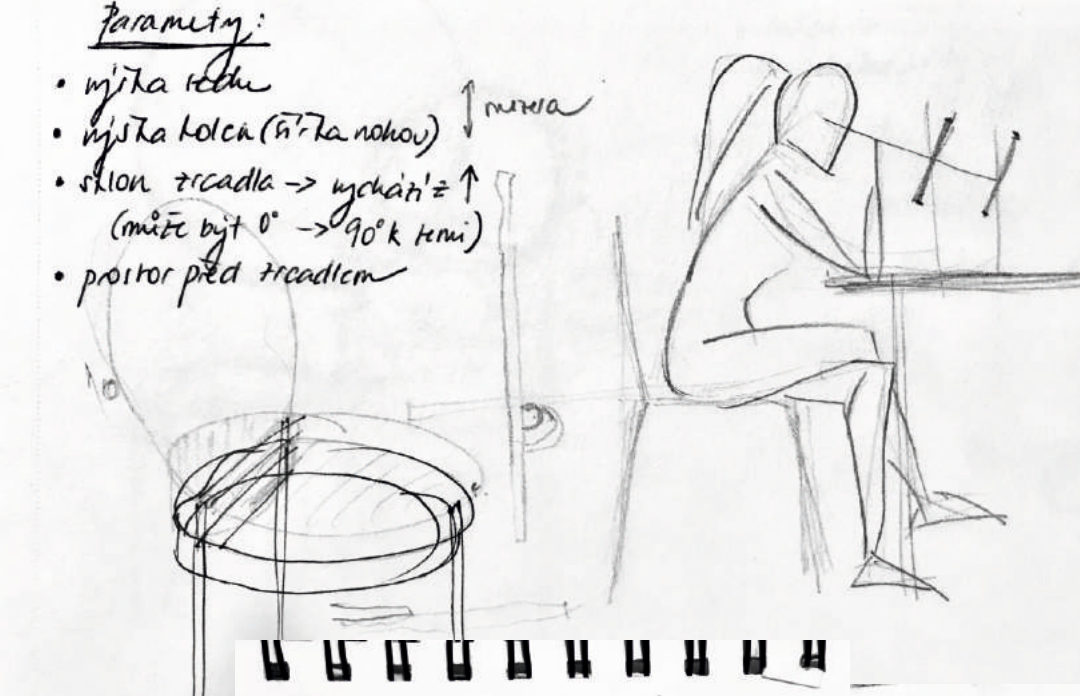 Parametry:
• výška sedu
• výška kolen (šířka nohou)
mezera
• sklon zrcadla -> vychází z ↑
(může být 0° -> 90° k zemi)
• prostor před zrcadlem